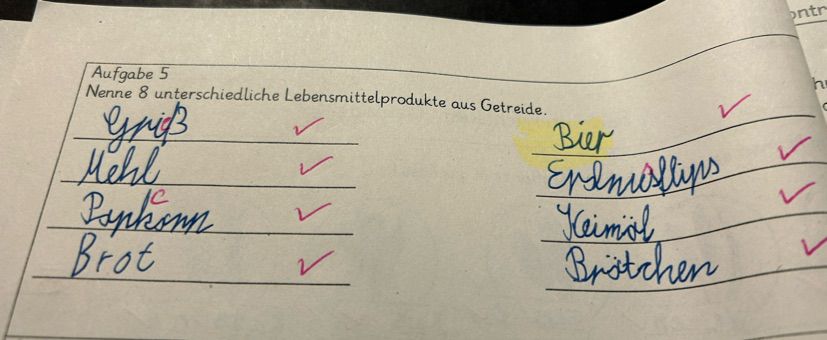 ontr
Aufgabe 5
Nenne 8 unterschiedliche Lebensmittelprodukte aus Getreide.
Grieß
Mehl
Popkorn
c
Brot
Bier
Erdnussflips
Keimöl
Brötchen